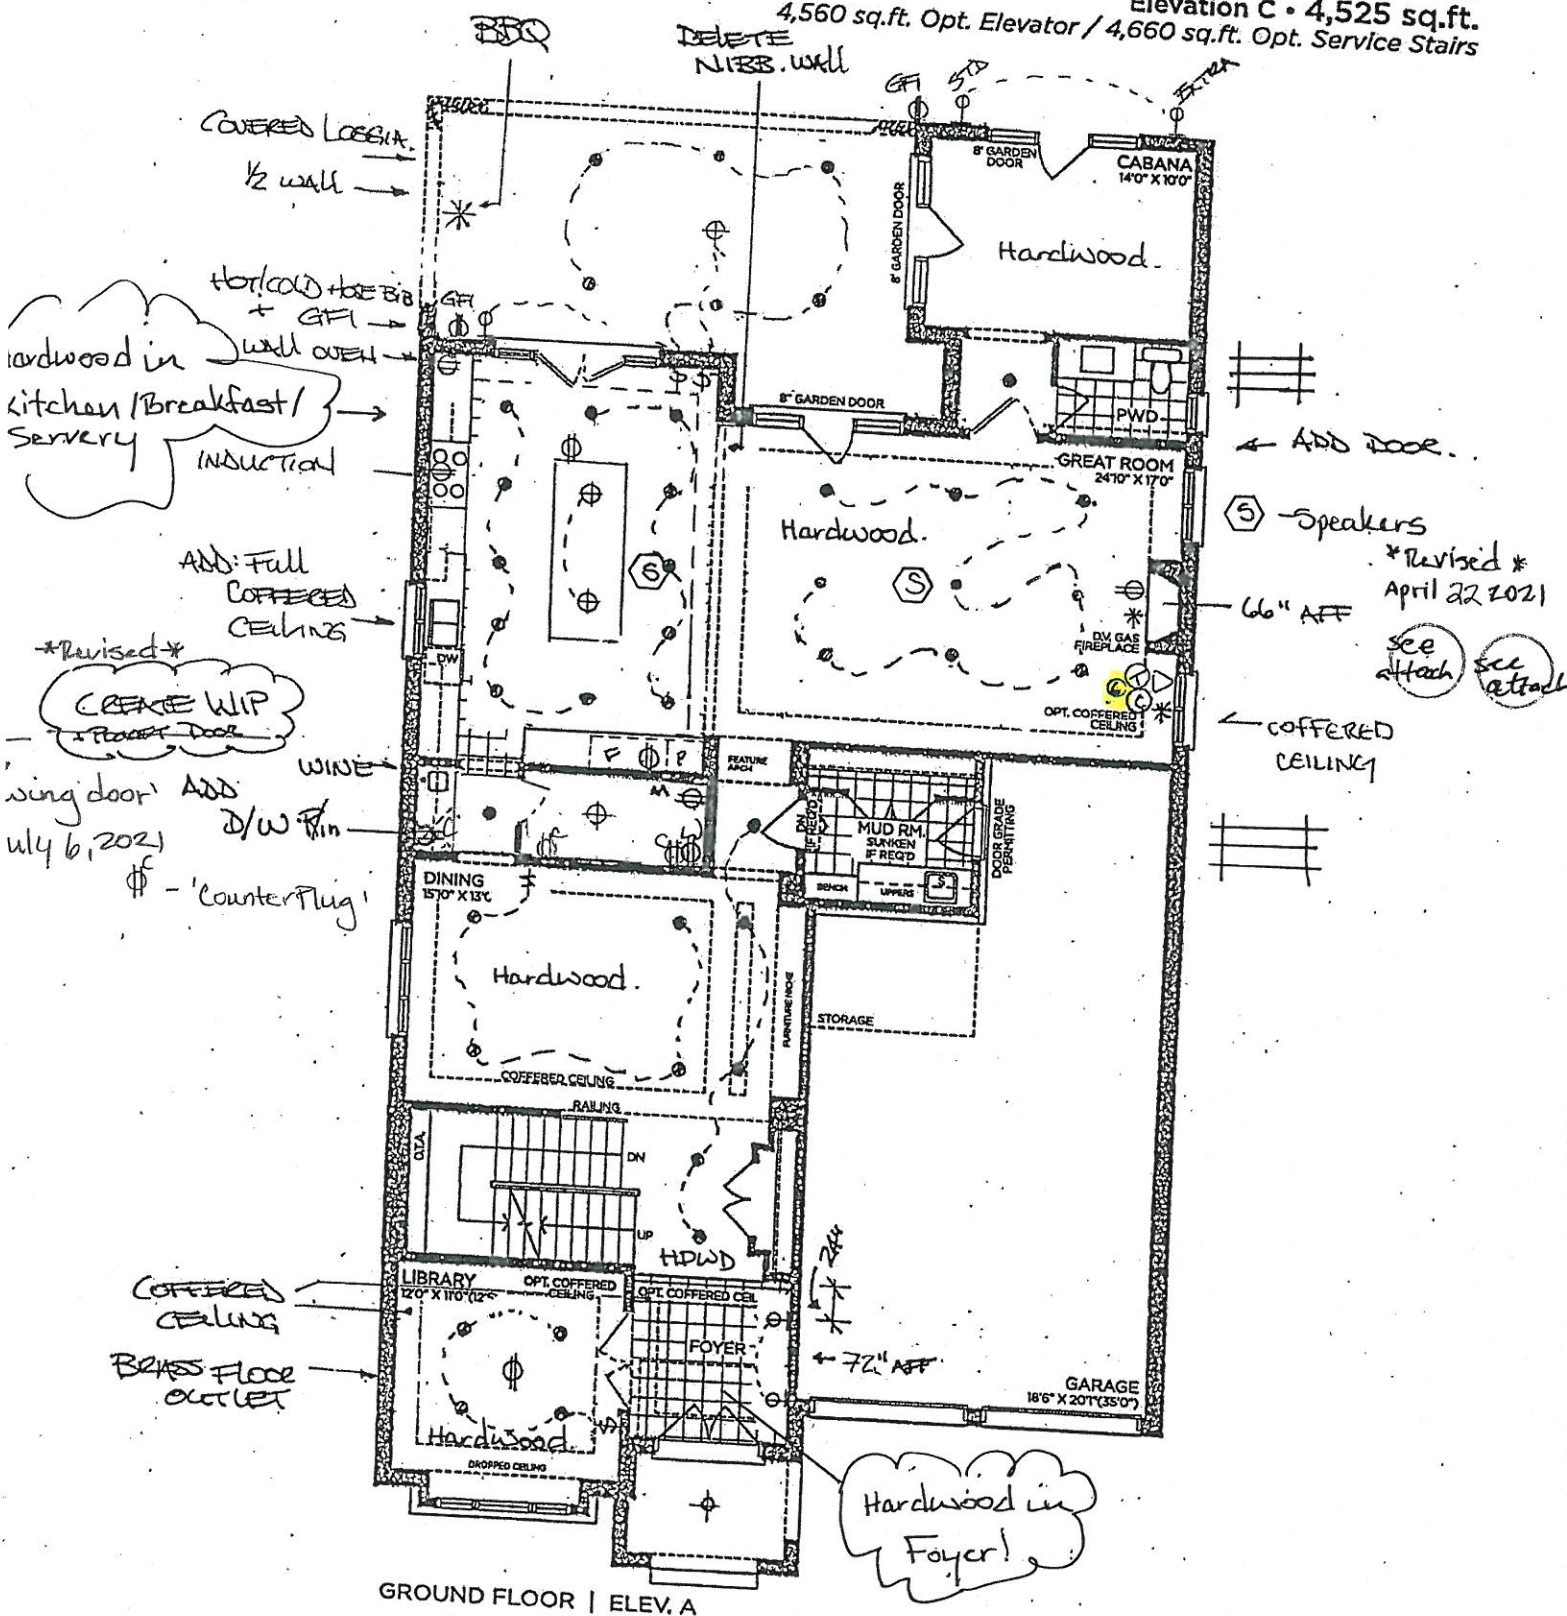 Elevation C • 4,525 sq.ft.
4,560 sq.ft. Opt. Elevator / 4,660 sq.ft. Opt. Service Stairs
BBQ
DELETE
NIBB. WALL
GFI
STD
EXTRA
COVERED LOGGIA.
1/2 WALL
8' GARDEN
DOOR
CABANA
14'0" X 10'0"
8' GARDEN DOOR
Hardwood.
HOT/COLD HOSE BIB
+ GFI
GFI
WALL OVEN
ardwood in
Kitchen/Breakfast/
Servery
INDUCTION
8' GARDEN DOOR
PWD
ADD DOOR.
GREAT ROOM
24'10" X 17'0"
Hardwood.
S - Speakers
*Revised*
April 22 2021
S
S
ADD: Full
COFFERED
CEILING
66" AFF
see
attach
see
attach
D.V. GAS
FIREPLACE
DW
*Revised*
CREATE WIP
+ POCKET DOOR
T
C
OPT. COFFERED
CEILING
COFFERED
CEILING
WINE
F
P
FEATURE
ARCH
wing door'
uly 6, 2021
ADD
D/W R/in
M
DN
IF REQ'D
MUD RM.
SUNKEN
IF REQ'D
DOOR GRADE
PERMITTING
BENCH
UPPERS
S
C - 'Counter Plug'
DINING
Hardwood.
FURNITURE NICHE
STORAGE
COFFERED CEILING
RAILING
O.T.A.
DN
UP
HDWD
2x4
COFFERED
CEILING
LIBRARY
OPT. COFFERED
CEILING
OPT. COFFERED CEIL
FOYER
72" AFF
BRASS FLOOR
OUTLET
Hardwood
DROPPED CEILING
GARAGE
18'6" X 20'1"(35'0")
Hardwood in
Foyer!
GROUND FLOOR | ELEV. A